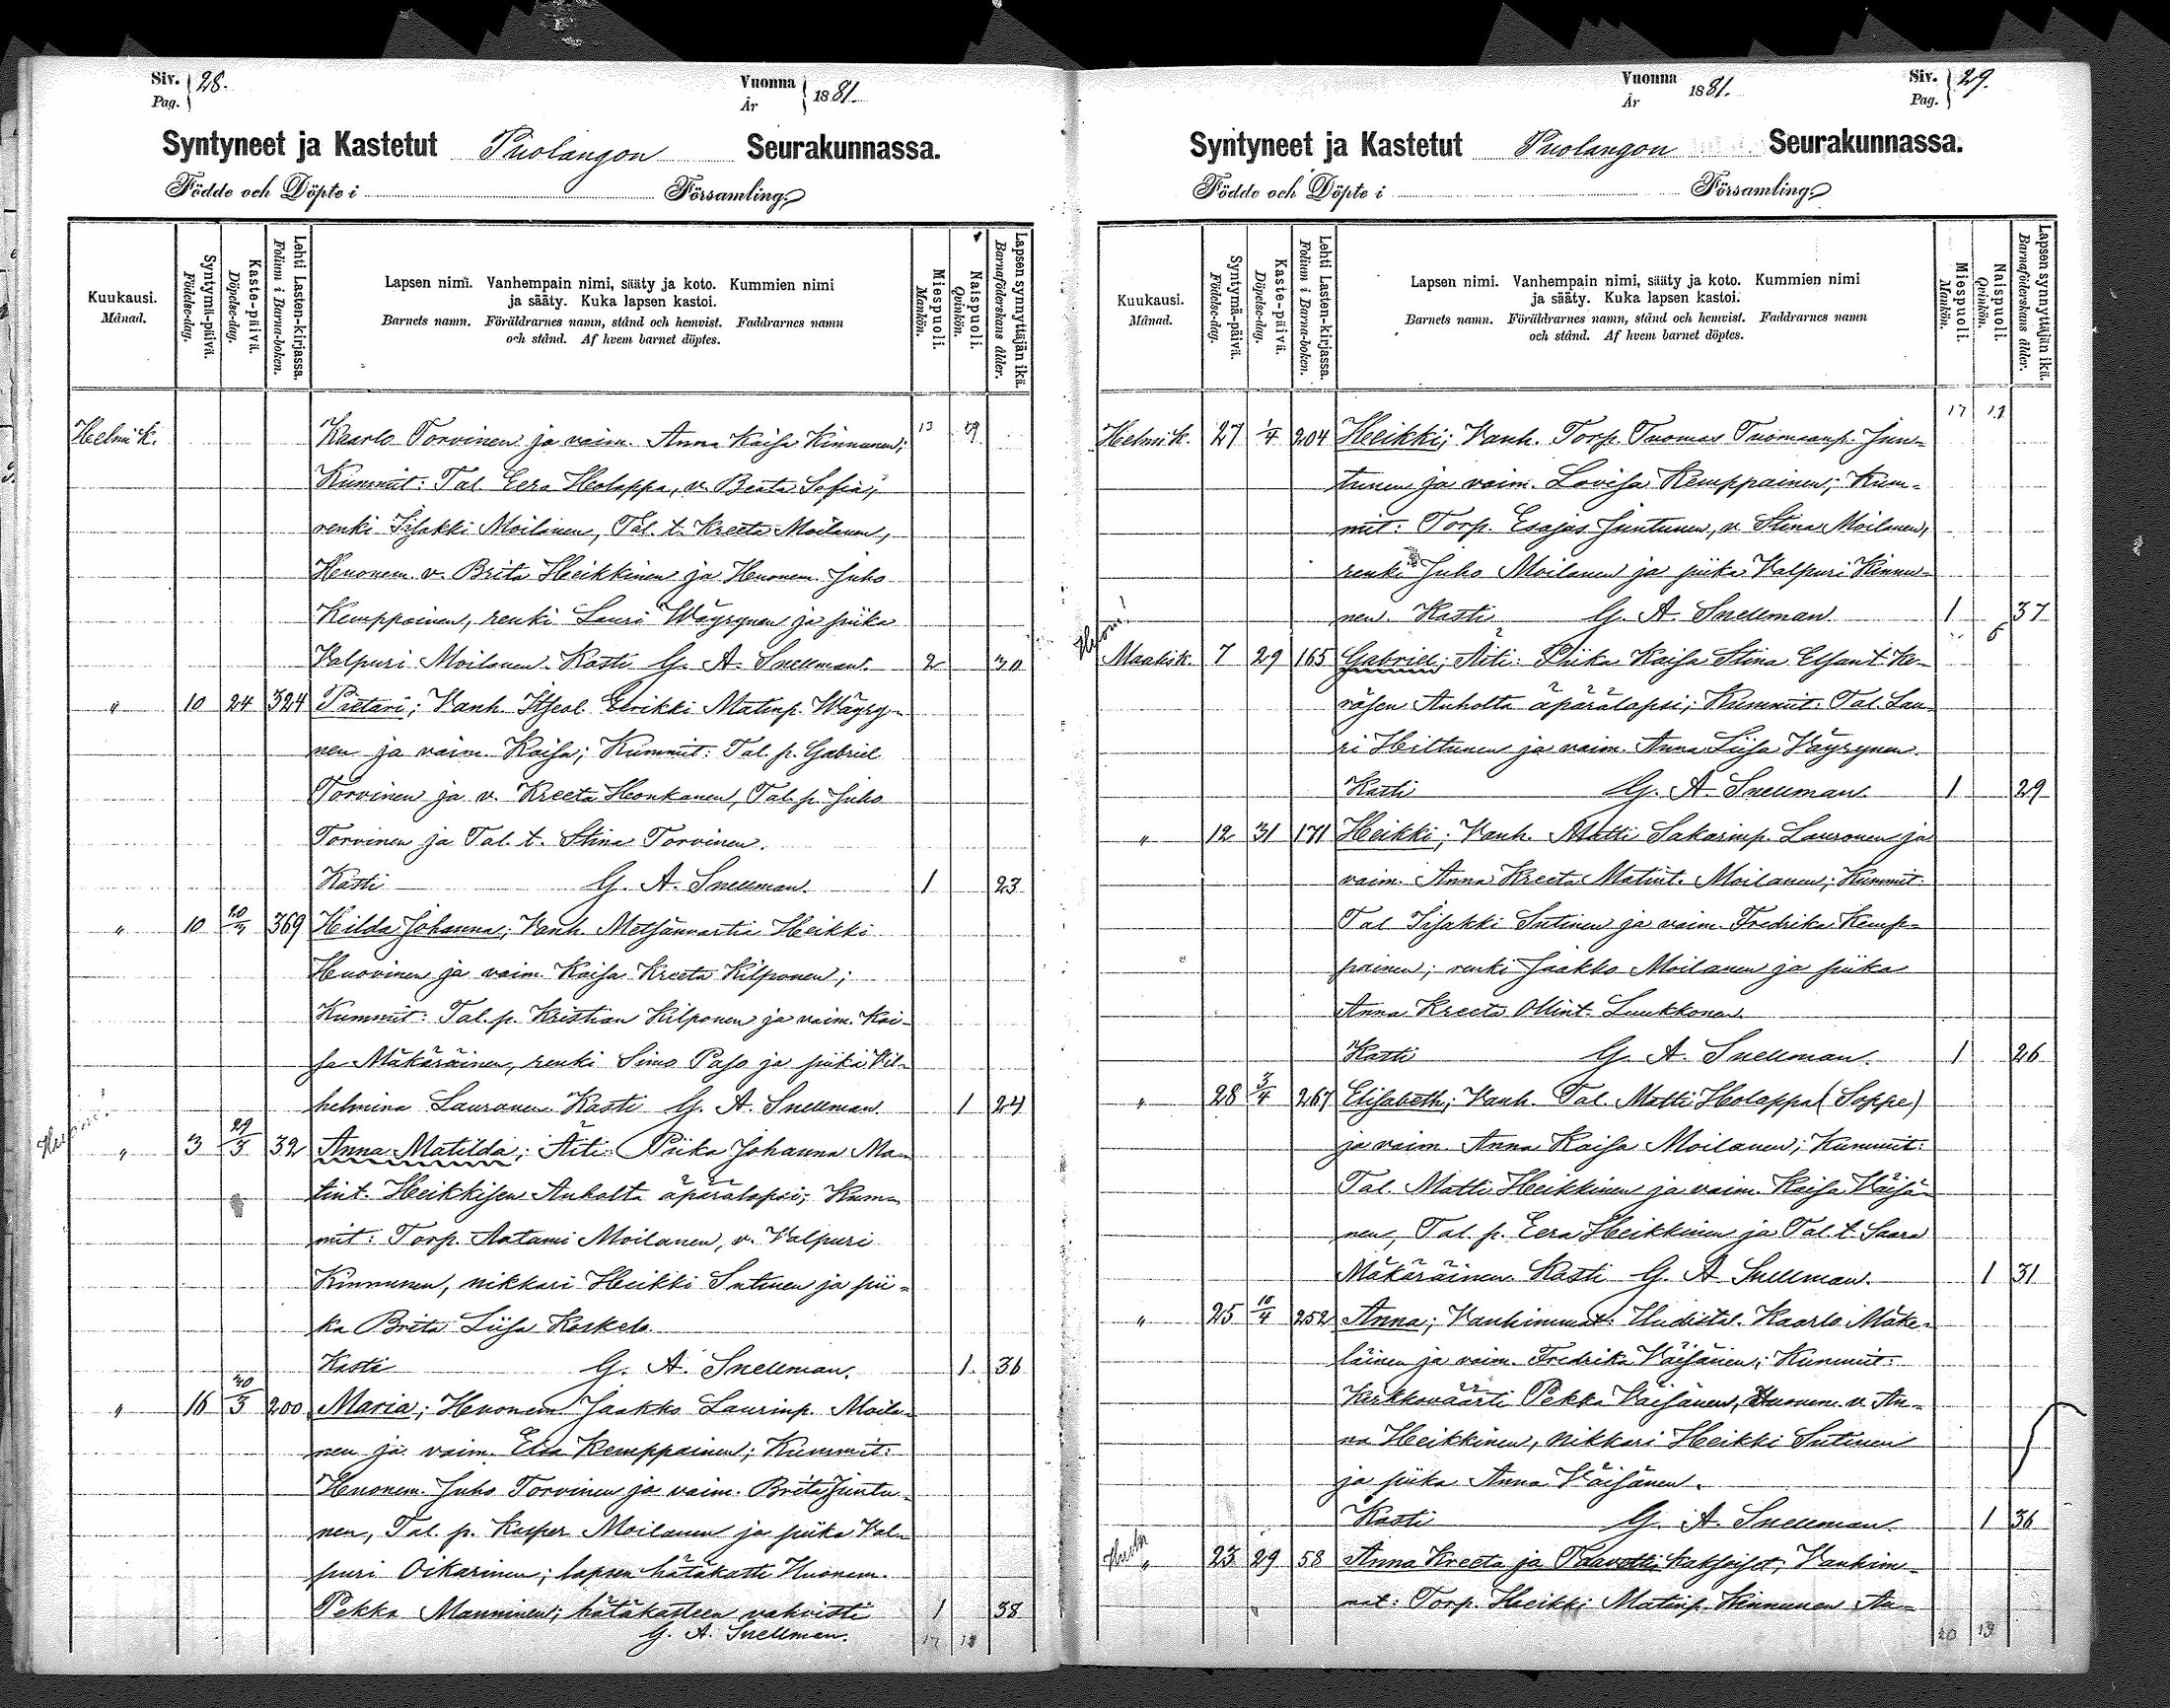 Siv. 28.
Pag.
Vuonna 1881.
År
Syntyneet ja Kastetut Puolangon Seurakunnassa.
Födde och Döpte i Församling.
Kuukausi.
Månad.
Syntymä-päivä.
Födelse-dag.
Kaste-päivä.
Döpelse-dag.
Lehti Lasten-kirjassa.
Folium i Barna-boken.
Lapsen nimi. Vanhempain nimi, sääty ja koto. Kummien nimi
ja sääty. Kuka lapsen kastoi.
Barnets namn. Föräldrarnes namn, stånd och hemvist. Faddrarnes namn
och stånd. Af hvem barnet döptes.
Miespuoli.
Mankön.
Naispuoli.
Qvinkön.
Lapsen synnyttäjän ikä.
Barnaföderskans ålder.
Helmik. Kaarlo Torvinen ja vaim. Anna Kaisa Kinnunen; 13
Kummit: Tal. Eera Holappa, v. Beata Sofia;
renki Iisakki Moilanen, Tal. t. Kreeta Moilanen,
Huonem. v. Brita Heikkinen ja Huonem. Juho
Kemppainen, renki Lauri Wäyrynen ja piika
Valpuri Moilanen. Kasti G. A. Snellman. 2 30
" 10 24 324 Pietari; Vanh. Itsel. Eerikki Matinp. Wäyry-
nen ja vaim. Kaisa; Kummit: Tal. p. Gabriel
Torvinen ja v. Kreeta Honkanen, Tal. p. Juho
Torvinen ja Tal. t. Stina Torvinen.
Kasti G. A. Snellman. 1 23
" 10 369 Hilda Johanna; Vanh. Metsänvartia Heikki
Huovinen ja vaim. Kaisa Kreeta Kilponen;
Kummit: Tal. p. Kristian Kilponen ja vaim. Kai-
sa Mäkäräinen, renki Simo Paso ja piika Vil-
helmina Lauronen Kasti G. A. Snellman 1 24
" 3 29/3 32 Anna Matilda; Äiti: Piika Johanna Ma-
tint. Heikkisen Auholta äpärälapsi; Kum-
mit: Torp. Aatami Moilanen, v. Valpuri
Kinnunen, nikkari Heikki Sutinen ja pii-
ka Brita Liisa Koskelo.
Kasti G. A. Snellman. 1 36
" 16 20/3 200 Maria; Huonem Jaakko Laurinp. Moila-
nen ja vaim. Elsa Kemppainen; Kummit:
Huonem. Juho Torvinen ja vaim. Brita Juntu-
nen, Tal. p. Kasper Moilanen ja piika Val-
puri Oikarinen; lapsen hätäkasti Huonem.
Pekka Manninen; hätäkasteen vahvisti 1 38
G. A. Snellman. 17 18
Vuonna 1881.
År
Siv. 29.
Pag.
Syntyneet ja Kastetut Puolangon Seurakunnassa.
Födde och Döpte i Församling.
Kuukausi.
Månad.
Syntymä-päivä.
Födelse-dag.
Kaste-päivä.
Döpelse-dag.
Lehti Lasten-kirjassa.
Folium i Barna-boken.
Lapsen nimi. Vanhempain nimi, sääty ja koto. Kummien nimi
ja sääty. Kuka lapsen kastoi.
Barnets namn. Föräldrarnes namn, stånd och hemvist. Faddrarnes namn
och stånd. Af hvem barnet döptes.
Miespuoli.
Mankön.
Naispuoli.
Qvinkön.
Lapsen synnyttäjän ikä.
Barnaföderskans ålder.
17 19
Helmik. 27 1/4 204 Heikki; Vanh. Torp. Tuomas Tuomaanp. Jun-
tunen ja vaim. Lovisa Kemppainen; Kum-
mit: Torp. Esajas Juntunen, v. Stina Moilanen,
renki Juho Moilanen ja piika Valpuri Kinnu-
nen. Kasti G. A. Snellman. 1 37
Maalisk. 7 29 165 Gabriel; Äiti: Piika Kaisa Stina Esant. Ke-
räsen Auholta äpärälapsi; Kummit: Tal. Lau-
ri Hiltunen ja vaim. Anna Liisa Väyrynen.
Kasti G. A. Snellman. 1 29
" 12 31 171 Heikki; Vanh. Matti Sakarinp. Lauronen ja
vaim. Anna Kreeta Matint. Moilanen; Kummit:
Tal Iisakki Sutinen ja vaim. Fredrika Kemp-
painen; renki Jaakko Moilanen ja piika
Anna Kreeta Ollint. Luukkonen.
Kasti G. A. Snellman. 1 26
" 28 3/4 267 Elisabeth; Vanh. Tal. Matti Holappa (Soppe)
ja vaim. Anna Kaisa Moilanen; Kummit:
Tal. Matti Heikkinen ja vaim. Kaisa Väisä-
nen, Tal. p. Eera Heikkinen ja Tal. t. Saara
Mäkäräinen. Kasti G. A. Snellman. 1 31
" 25 10/4 252 Anna; Vanhimmat: Uudistal. Kaarlo Mäke-
läinen ja vaim. Fredrika Väisänen; Kummit:
Kirkkoväärti Pekka Väisänen, Huonem. v. An-
na Heikkinen, nikkari Heikki Sutinen
ja piika Anna Väisänen.
Kasti G. A. Snellman. 1 36
" 23 29 58 Anna Kreeta ja Taavetti kaksoiset; Vanhim-
mat: Torp. Heikki Matinp. Kinnunen An-
20 19